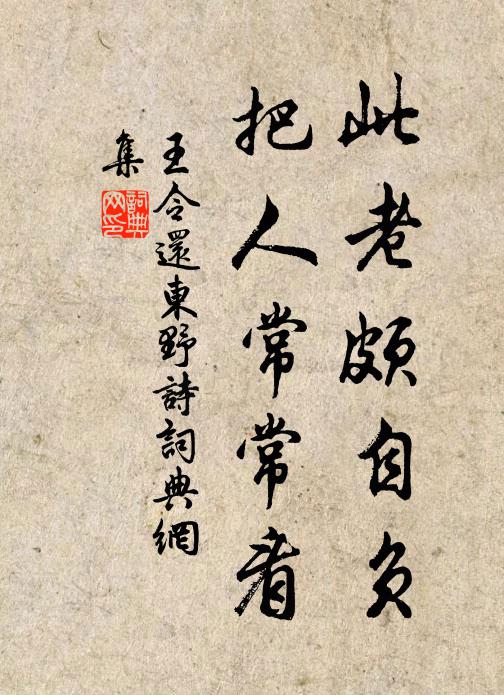 此老頗自負
把人常常看
王令還東野詩詞典網
集
詞典
网印